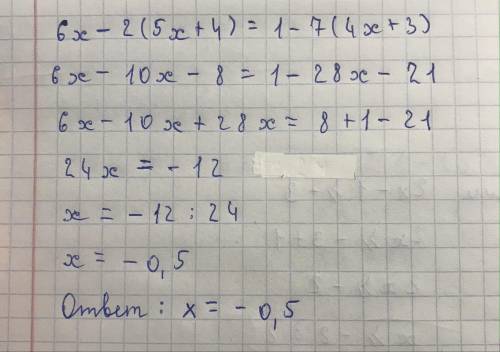 6x - 2(5x+4) = 1 - 7(4x+3)
6x - 10x - 8 = 1 - 28x - 21
6x - 10x + 28x = 8 + 1 - 21
24x = - 12
x = - 12 : 24
x = - 0,5
Ответ : x = - 0,5